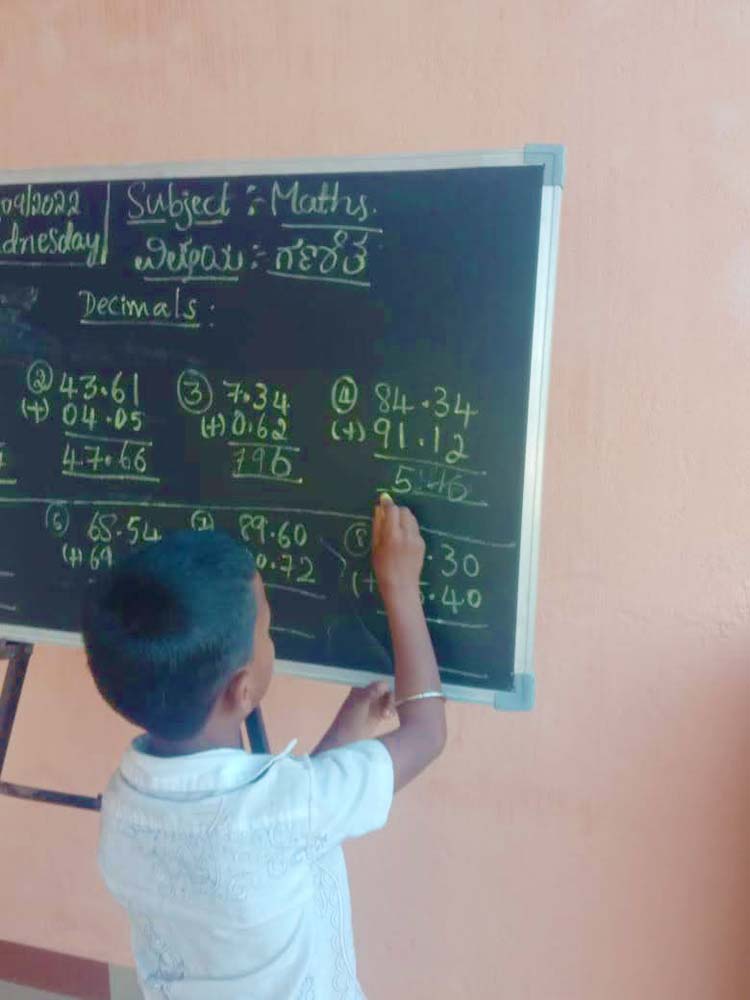 09/2022
dnesday
Subject :- Maths.
ವಿಷಯ :- ಗಣಿತ
Decimals :
② 43.61
(+) 04.05
47.66
③ 7.34
(+) 0.62
796
④ 84.34
(+) 91.12
5 46
⑥ 68.54
(+) 69
⑦ 89.60
0.72
⑧ .30
.40